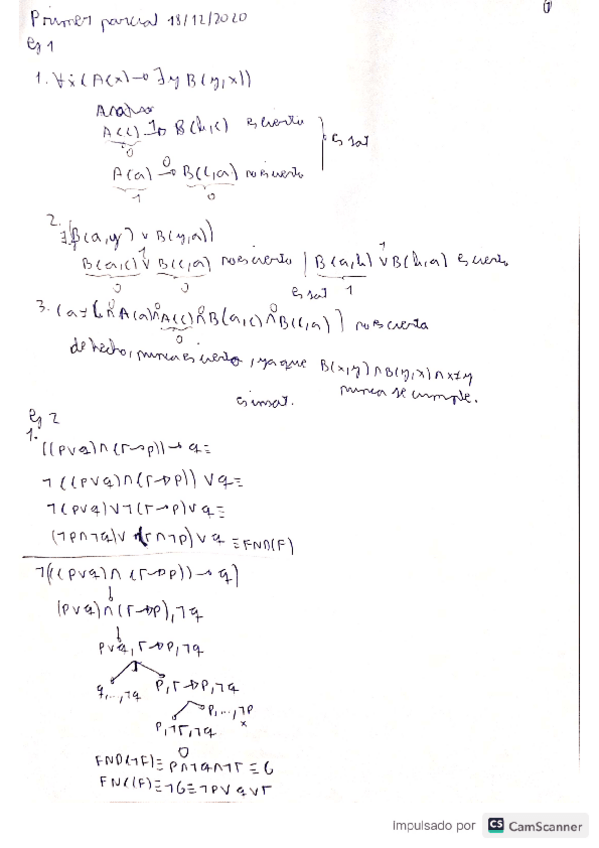 Primer parcial 18/12/2020
Ej 1
1. ∀x(A(x)→∃yB(y,x))
A(c) → B(b,c) es cierto
0
es sat
A(a) → B(c,a) no es cierto
1 0
2.
∃y(B(a,y) ∨ B(y,a))
B(a,c) ∨ B(c,a) no es cierto | B(a,b) ∨ B(b,a) es cierto
0 0 es sat 1
3. (a≠c ∧ A(a) ∧ A(c) ∧ B(a,c) ∧ B(c,a)) no es cierta
0
de hecho, nunca es cierto, ya que B(x,y)∧B(y,x)∧x≠y
nunca se cumple.
es insat.
Ej 2
1.
((p∨q)∧(r→p))→q≡
¬((p∨q)∧(r→p))∨q≡
¬(p∨q)∨¬(r→p)∨q≡
(¬p∧¬q)∨(r∧¬p)∨q ≡FND(F)
¬(((p∨q)∧(r→p))→q)
(p∨q)∧(r→p),¬q
p∨q, r→p,¬q
q,...,¬q p, r→p,¬q
p,...,¬p
p,¬r,¬q x
FND(¬F)≡p∧¬q∧¬r≡G
FNC(F)≡¬G≡¬p∨q∨r
Impulsado por CS CamScanner